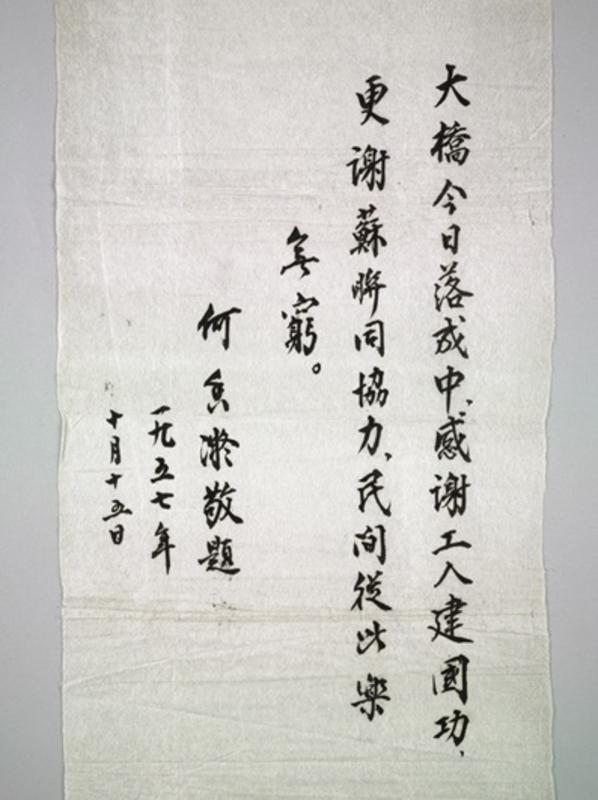 大橋今日落成中、感謝工人建國功、
更謝蘇聯同協力、民间從此樂
無窮。
何香凝敬題
一九五七年
十月十五日